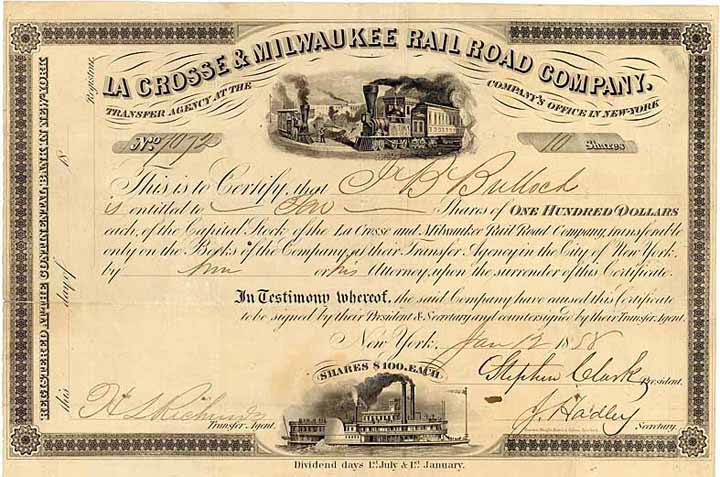 LA CROSSE & MILWAUKEE RAIL ROAD COMPANY.
TRANSFER AGENCY AT THE COMPANY'S OFFICE IN NEW-YORK
No. 1072 10 Shares
This is to Certify, that J B Bulloch
is entitled to Ten Shares of ONE HUNDRED DOLLARS
each, of the Capital Stock of the La Crosse and Milwaukee Rail Road Company, transferable
only on the Books of the Company, at their Transfer Agency in the City of New York,
by him or his Attorney, upon the surrender of this Certificate.
In Testimony whereof, the said Company have caused this Certificate
to be signed by their President & Secretary and countersigned by their Transfer Agent.
New York. Jan 12 1858
SHARES $100. EACH
Stephen Clark President.
Transfer Agent.
J. Hadley Secretary.
Dividend days 1st July & 1st January.
REGISTERED AT THE CONTINENTAL BANK IN NEW-YORK
this day of 18
Registrar.